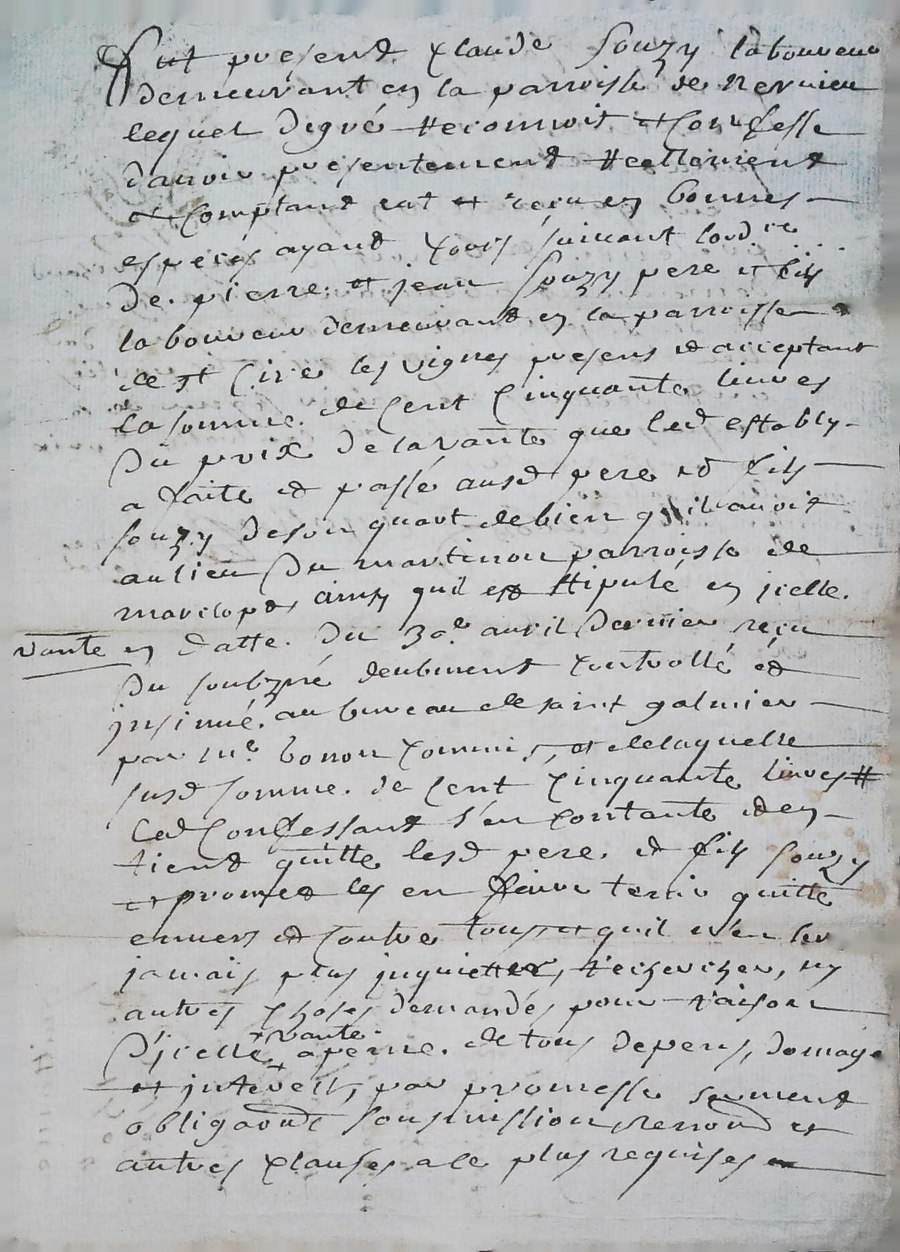 Fut présend Claude Souzy laboureur
demeurant en la parroisse de Nervieu
lequel de gré reconnoit et confesse
d'avoir présentement reellement
et comptand eut et reçu en bonnes
espèces ayand cours suivant
de pierre et jean Souzy pere et fils
laboureur demeurand en la parroisse
de st Cire les vignes presens et acceptant
la somme de Cent Cinquante livres
du prix de la vante que led estably
a faite et passé ausd pere et fils
Souzy de son quart de bien quil avoit
au lieu du martinon parroisse de
marclopt ainsy quil est stipulé en jcelle
vante en datte du 30e avril dernier reçu
du soubzné deubment controllé et
insinué au bureau de saint galmier
par me bonon commis, et de laquelle
susd somme de Cent Cinquante livres
led Confessand s'en contante et en
tiend quitte lesd pere et fils Souzy
et promet les en faire tenir quitte
envers et contre tous et quil n'en ser
jamais plus inquietter, rechercher, ny
autres choses demandés pour raison
d'jcelle vante a peine de tous depens, domage
et interest, par promesse serment
obligaond soumission renond et
autres clauses a ce plus requises